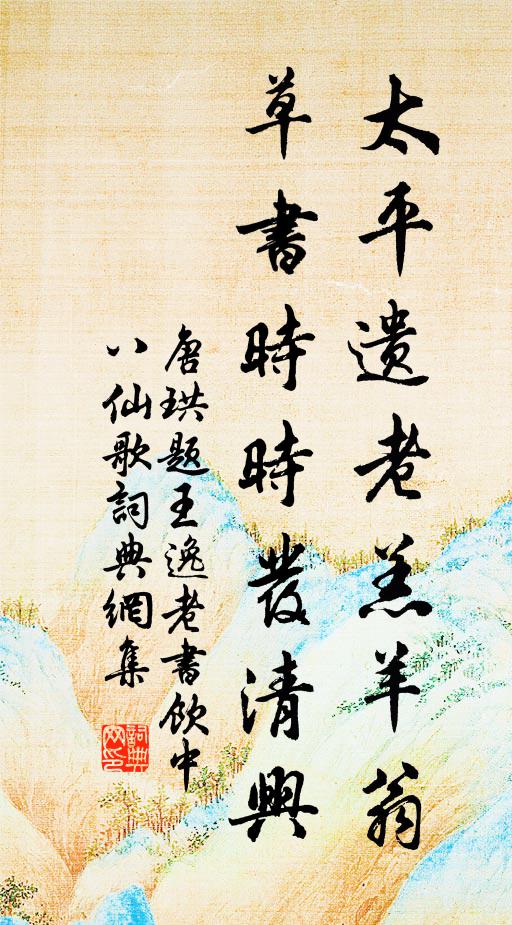 太平遺老羔羊翁
草書時時發清興
唐珙題王逸老書飲中
八仙歌詞典網集
詞典
网印